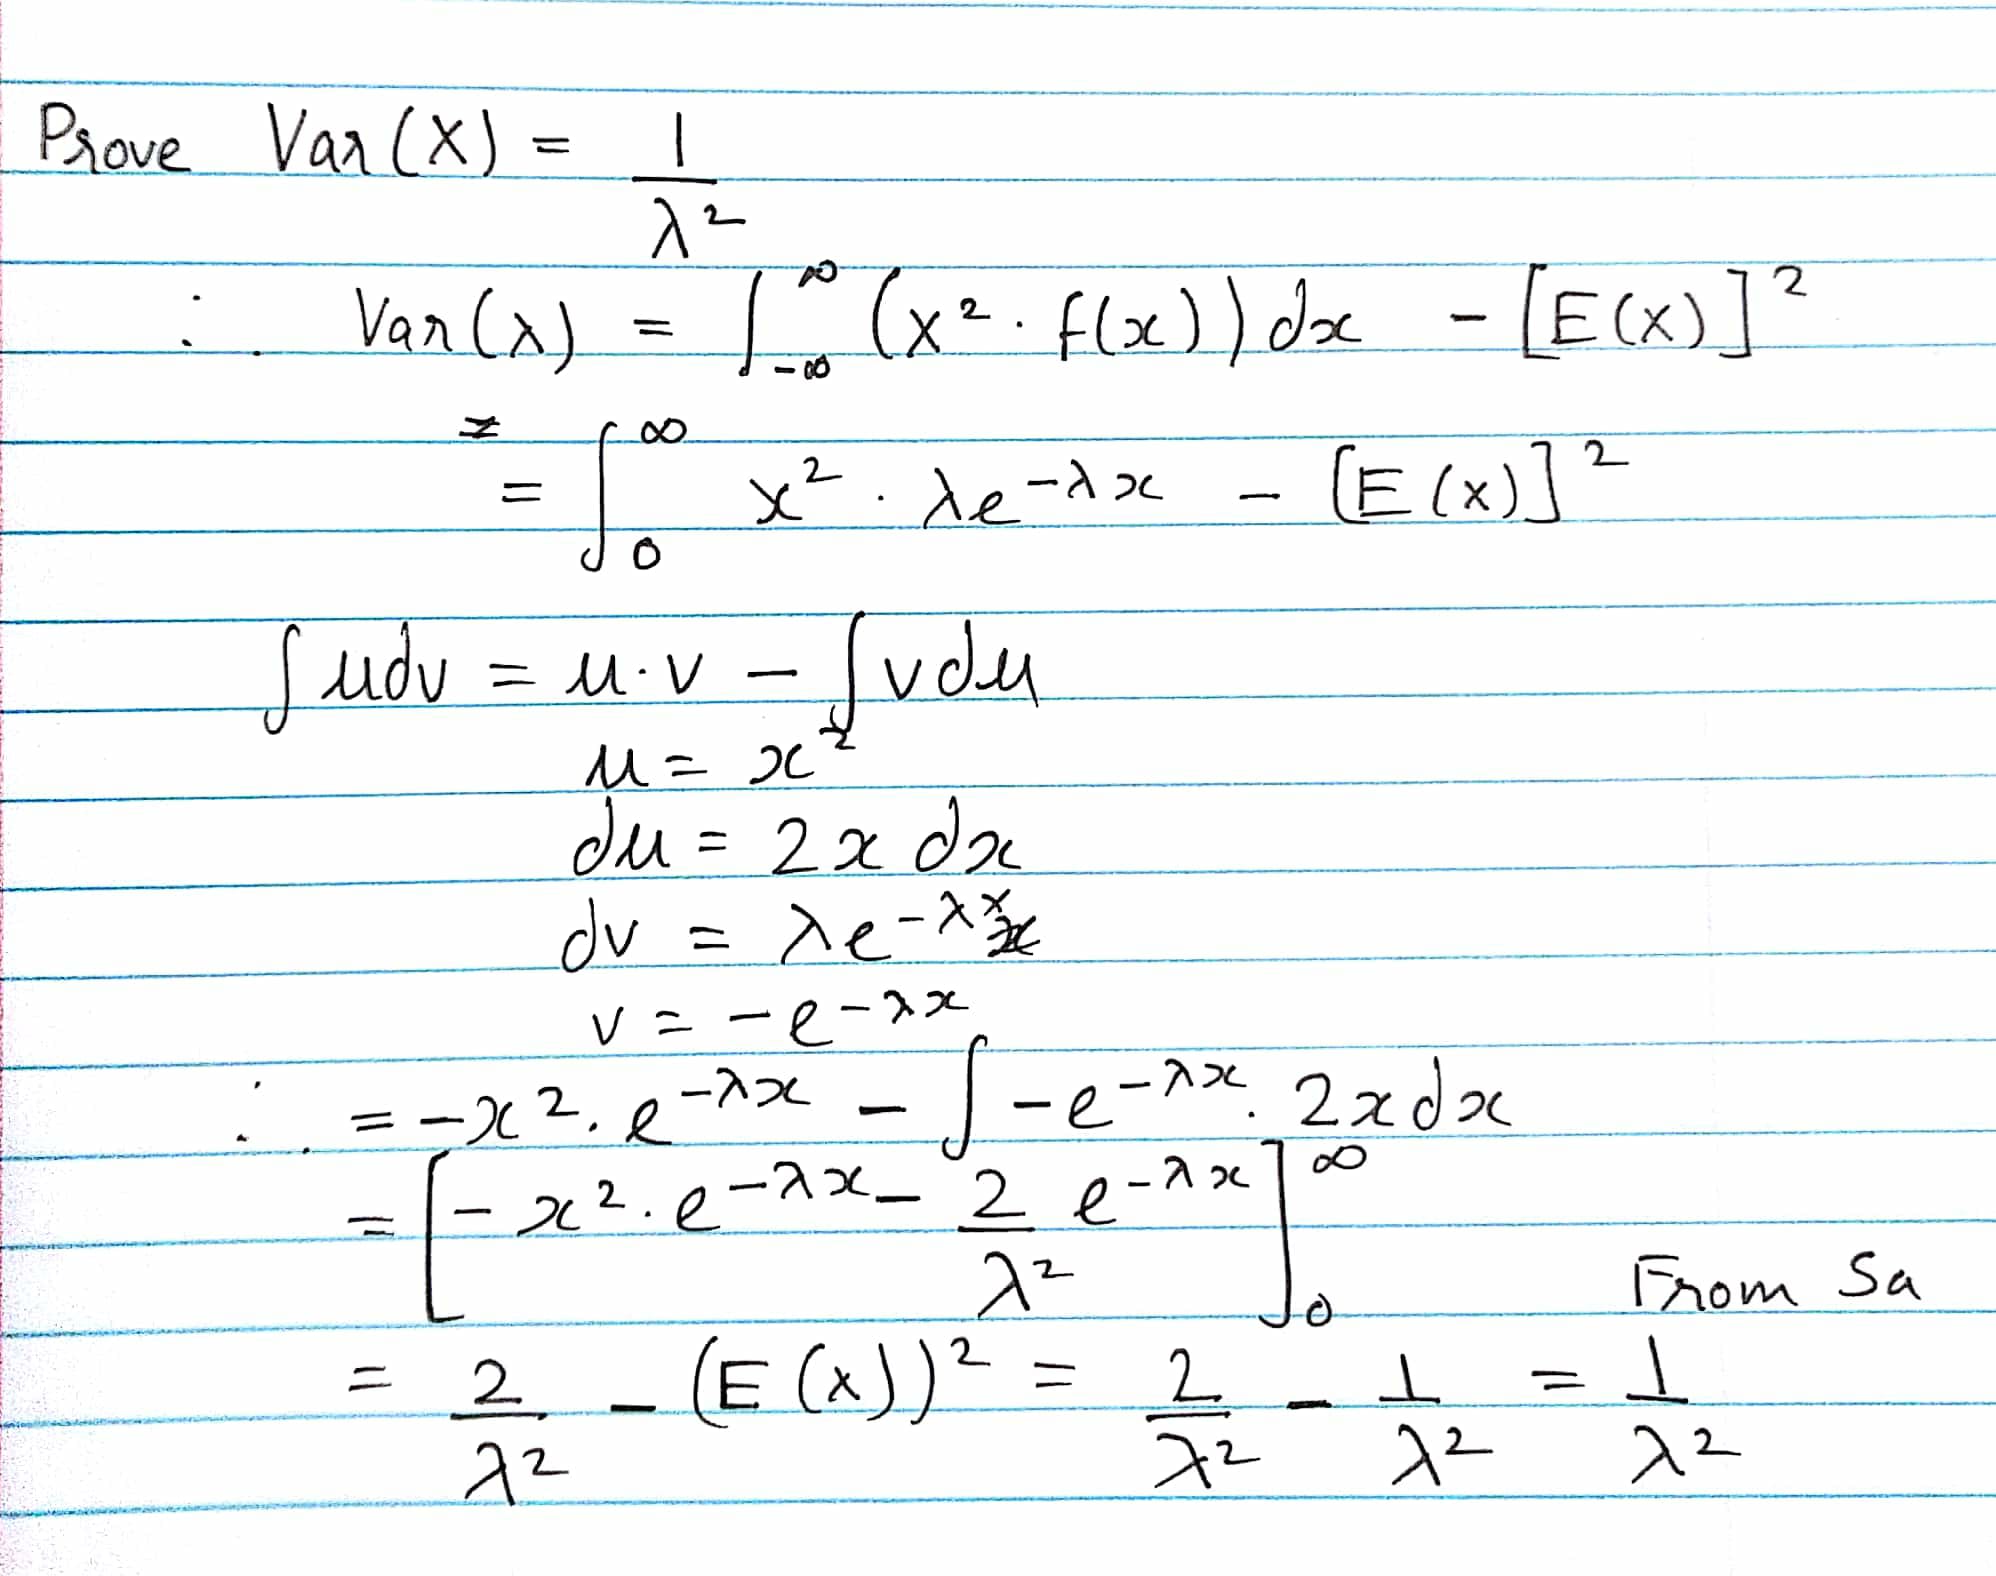 Prove Var(X) = 1/λ²
∴ Var(x) = ∫_{-∞}^{∞} (x² · f(x)) dx - [E(x)]²
= ∫_0^∞ x² · λe^{-λx} - [E(x)]²
∫udv = u·v - ∫vdu
u = x²
du = 2x dx
dv = λe^{-λx}
v = -e^{-λx}
∴ = -x².e^{-λx} - ∫-e^{-λx}. 2xdx
= [-x².e^{-λx} - 2/λ² e^{-λx}]_0^∞
From Sa
= 2/λ² - (E(x))² = 2/λ² - 1/λ² = 1/λ²